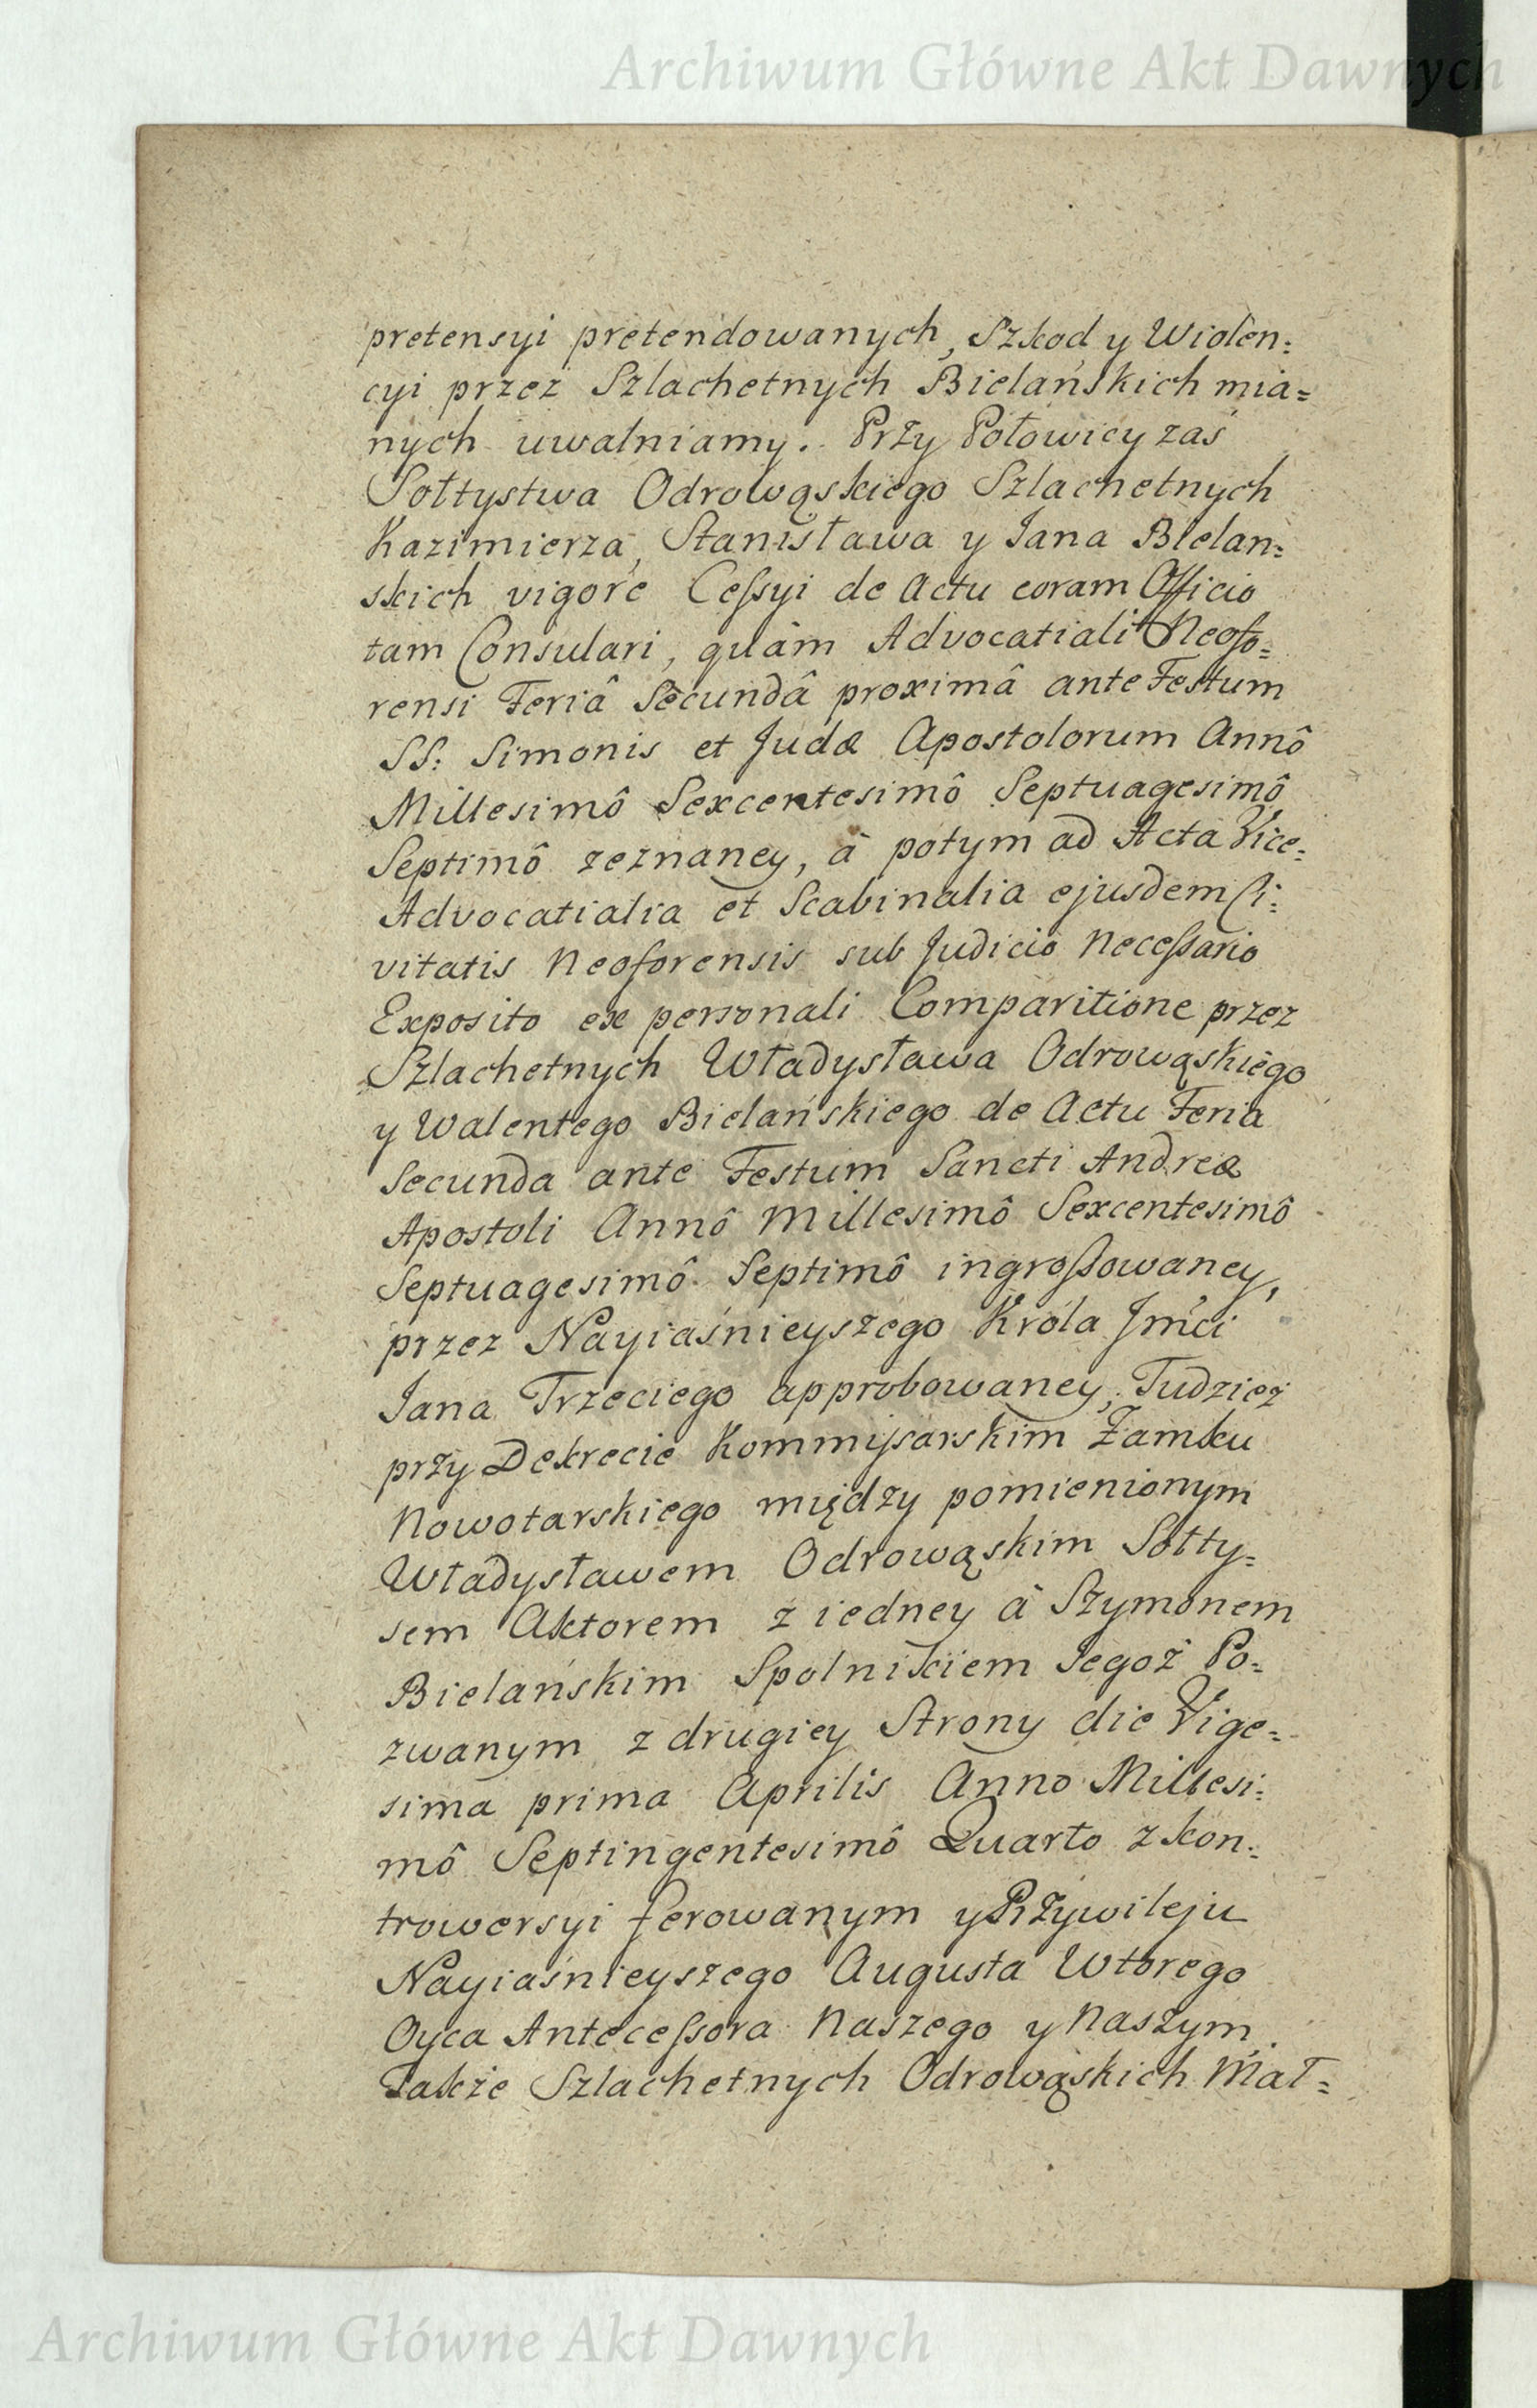 Archiwum Główne Akt Dawnych
pretensyi pretendowanych, Szkod y Wiolen:
cyi przez Szlachetnych Bielańskich mia=
nych uwalniamy. Przy Połowicy zaś
Sołtystwa Odrowąskiego Szlachetnych
Kazimierza, Stanisława y Jana Bielan:
skich vigore Cessyi de Actu coram Officio
tam Consulari, quàm Advocatiali Neofo=
rensi Feriâ Secundâ proximâ ante Festum
SS: Simonis et Judæ Apostolorum Annô
Millesimô Sexcentesimô Septuagesimô
Septimô zeznaney, à potym ad Acta Vice=
Advocatialia et Scabinalia ejusdem Ci:
vitatis Neoforensis sub Judicio Necessario
Exposito ex personali Comparitione przez
Szlachetnych Władysława Odrowąskiego
y Walentego Bielańskiego de Actu Feria
Secunda ante Festum Sancti Andreæ
Apostoli Annô Millesimô Sexcentesimô
Septuagesimô Septimô ingrossowaney,
przez Nayiaśnieyszego Króla Jmći
Jana Trzeciego approbowaney, Tudzież
przy Dekrecie Kommissarskim Zamku
Nowotarskiego między pomienionym
Władysławem Odrowąskim Sołty=
sem Aktorem z iedney à Szymonem
Bielańskim Spolnikiem Jegoż Po=
zwanym z drugiey Strony die Vige=
sima prima Aprilis Anno Millesi:
mô Septingentesimô Quarto z kon:
trowersyi ferowanym y Przywileju
Nayiaśnieyszego Augusta Wtorego
Oyca Antecessora Naszego y Naszym
Także Szlachetnych Odrowąskich Mał=
Archiwum Główne Akt Dawnych